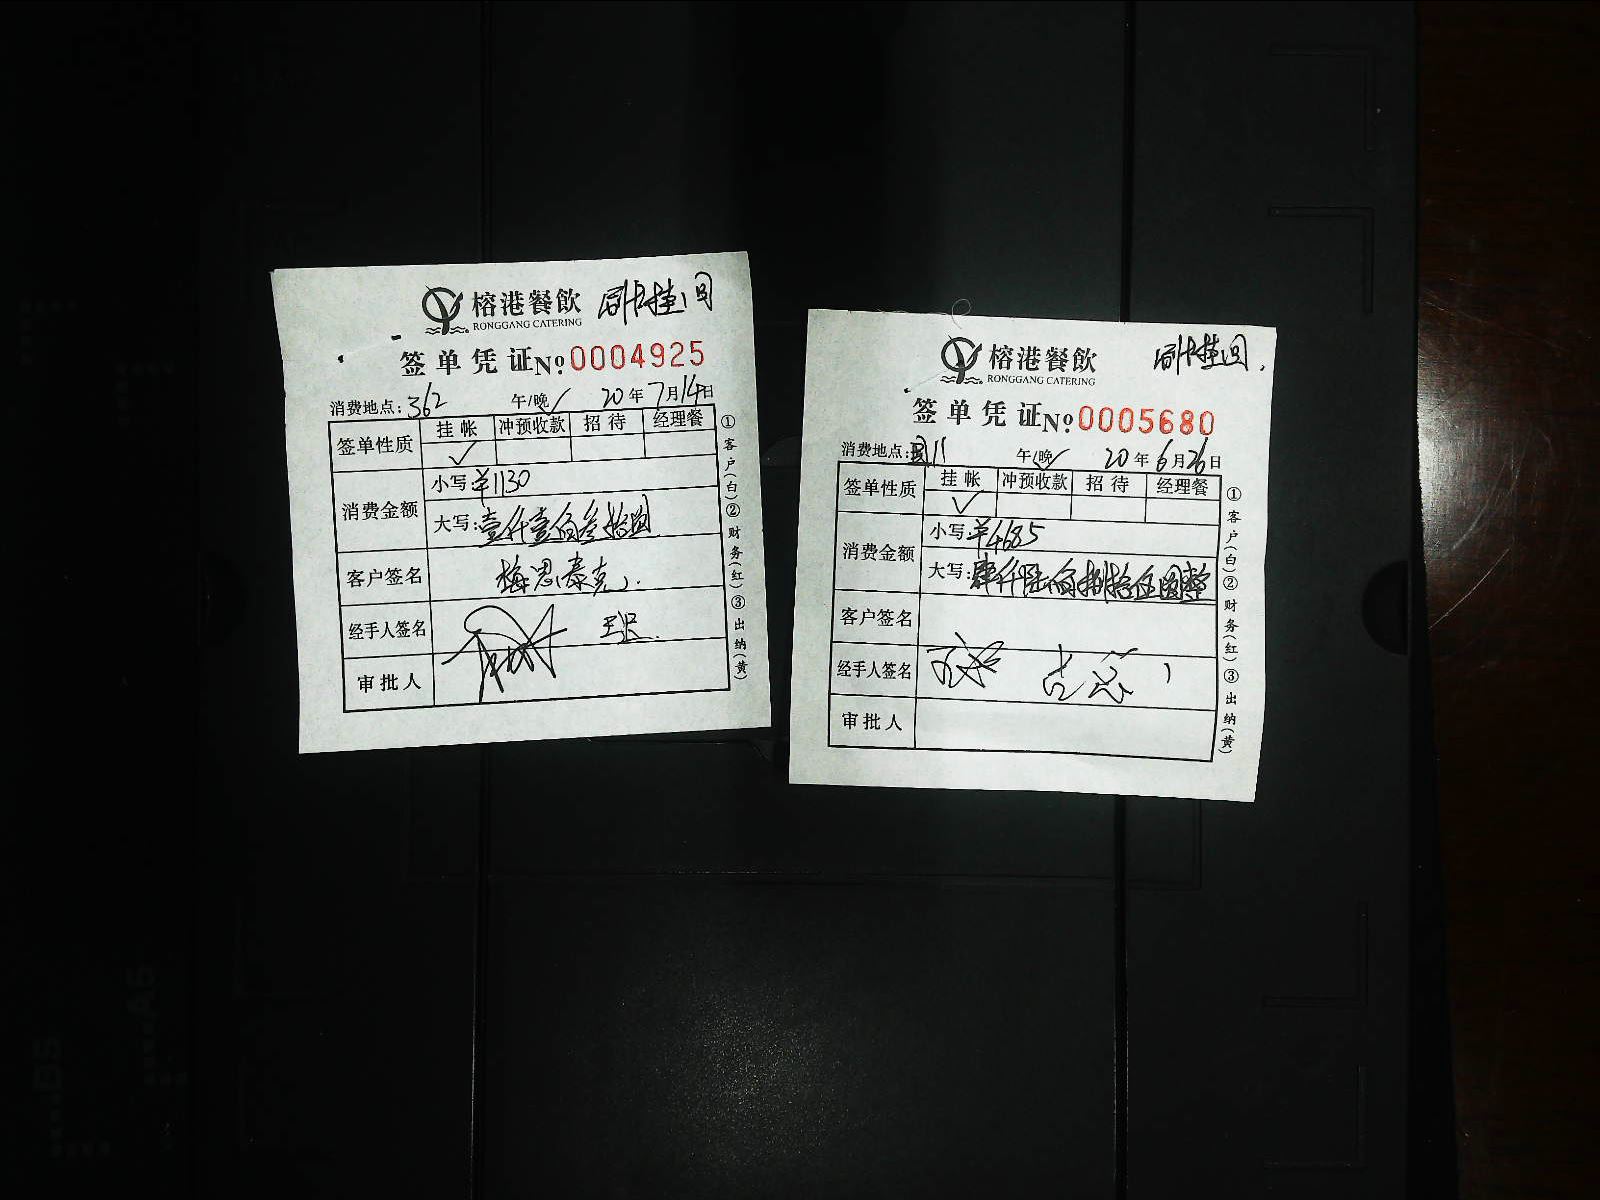 榕港餐飲 刷卡挂回
RONGGANG CATERING
签单凭证 No 0004925
消费地点:362 午/晚✓ 20年7月14日
签单性质 挂帐 冲预收款 招待 经理餐
✓
消费金额 小写:¥1130
大写:壹仟壹佰叁拾圆
客户签名 梅思泰克
经手人签名
审批人
①客户(白)②财务(红)③出纳(黄)
榕港餐飲 刷卡挂回
RONGGANG CATERING
签单凭证 No 0005680
消费地点: 午/晚✓ 20年6月26日
签单性质 挂帐 冲预收款 招待 经理餐
✓
消费金额 小写:¥4685
大写:肆仟陆佰捌拾伍圆整
客户签名
经手人签名
审批人
①客户(白)②财务(红)③出纳(黄)